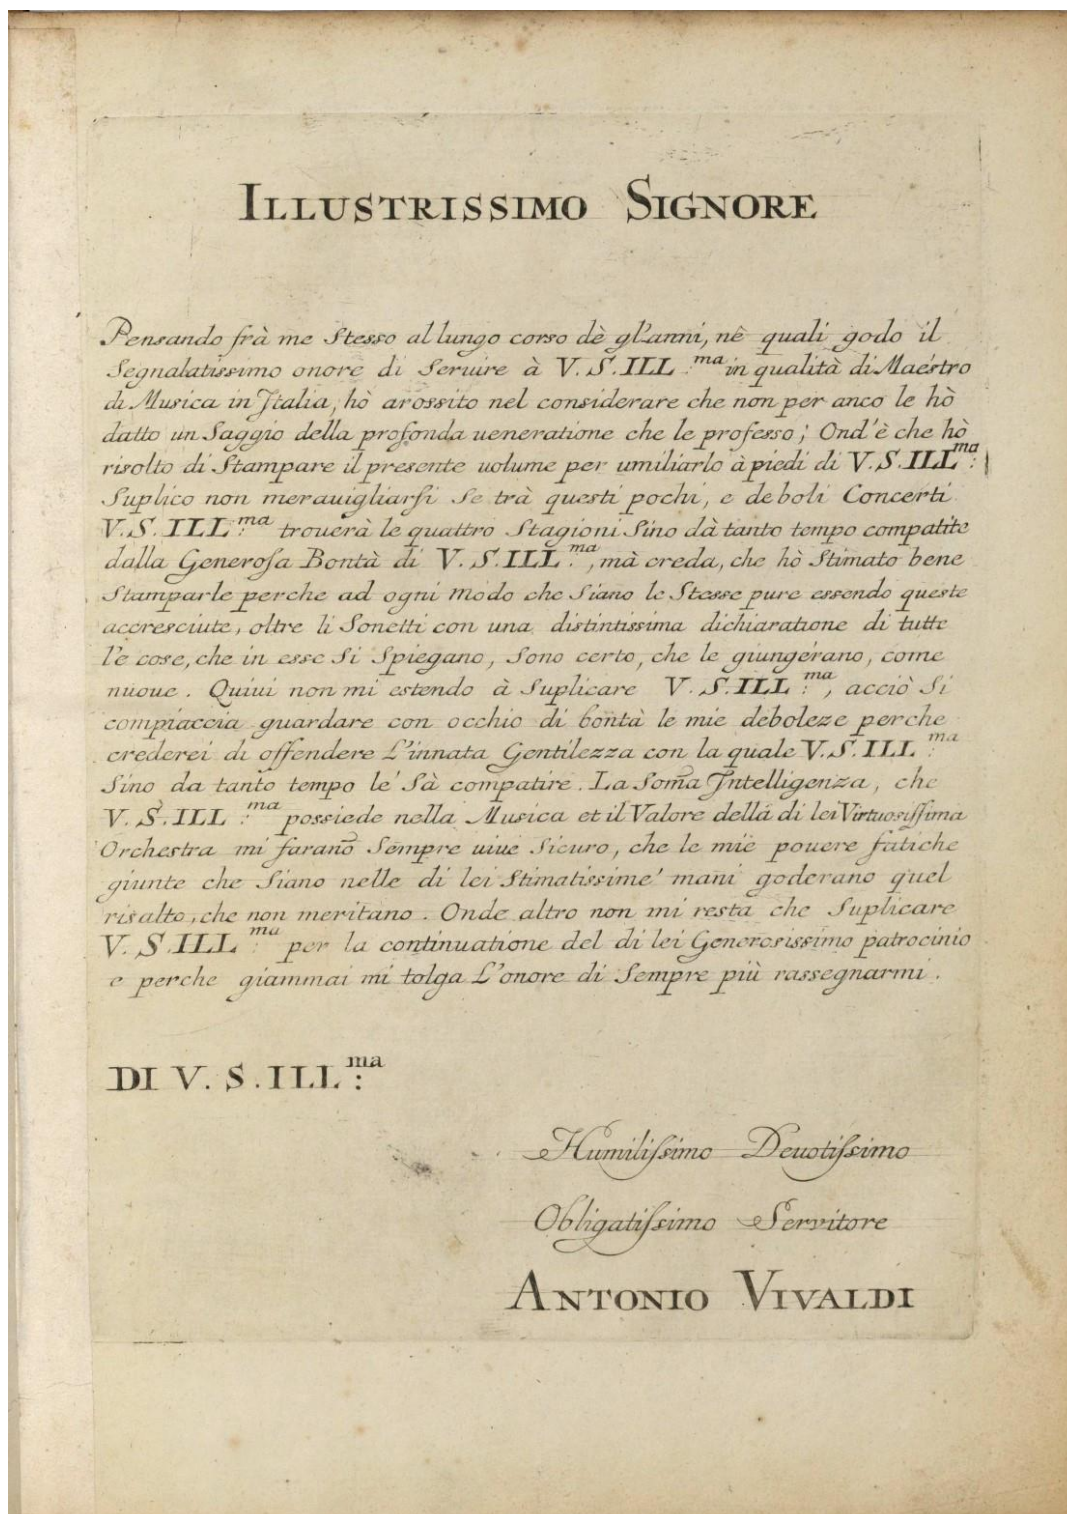 ILLUSTRISSIMO SIGNORE
Pensando frà me Stesso al lungo corso dè gl'anni, nè quali godo il
Segnalatissimo onore di Seruire à V. S. ILL:ma in qualità di Maéstro
di Musica in Italia, hò arossito nel considerare che non per anco le hò
datto un Saggio della profonda ueneratione che le professo; Ond'è che hò
risolto di Stampare il presente uolume per umiliarlo à piedi di V. S. ILL:ma
Suplico non merauigliarsi Se trà questi pochi, e deboli Concerti
V. S. ILL:ma trouerà le quattro Stagioni Sino dà tanto tempo compatite
dalla Generosa Bontà di V. S. ILL:ma, mà creda, che hò Stimato bene
Stamparle perche ad ogni modo che Siano le Stesse pure essendo queste
accresciute, oltre li Sonetti con una distintissima dichiaratione di tutte
l'e cose, che in esse Si Spiegano, Sono certo, che le giungerano, come
nuoue. Quiui non mi estendo à Suplicare V. S. ILL:ma, acciò Si
compiaccia guardare con occhio di bontà le mie deboleze perche
crederei di offendere L'innata Gentilezza con la quale V. S. ILL:ma
Sino da tanto tempo le' Sà compatire. La Som̃a Intelligenza, che
V. S. ILL:ma possiede nella Musica et il Valore della di lei Virtuosissima
Orchestra mi faranõ Sempre uiue Sicuro, che le mie pouere fatiche
giunte che Siano nelle di lei Stimatissime' mani goderano quel
risalto, che non meritano. Onde altro non mi resta che Suplicare
V. S. ILL:ma per la continuatione del di lei Generosissimo patrocinio
e perche giammai mi tolga L'onore di Sempre più rassegnarmi.
DI V. S. ILL:ma
Humilissimo Deuotissimo
Obligatissimo Servitore
ANTONIO VIVALDI